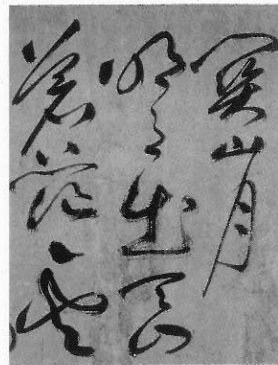 關山月
明月出天山
蒼茫雲